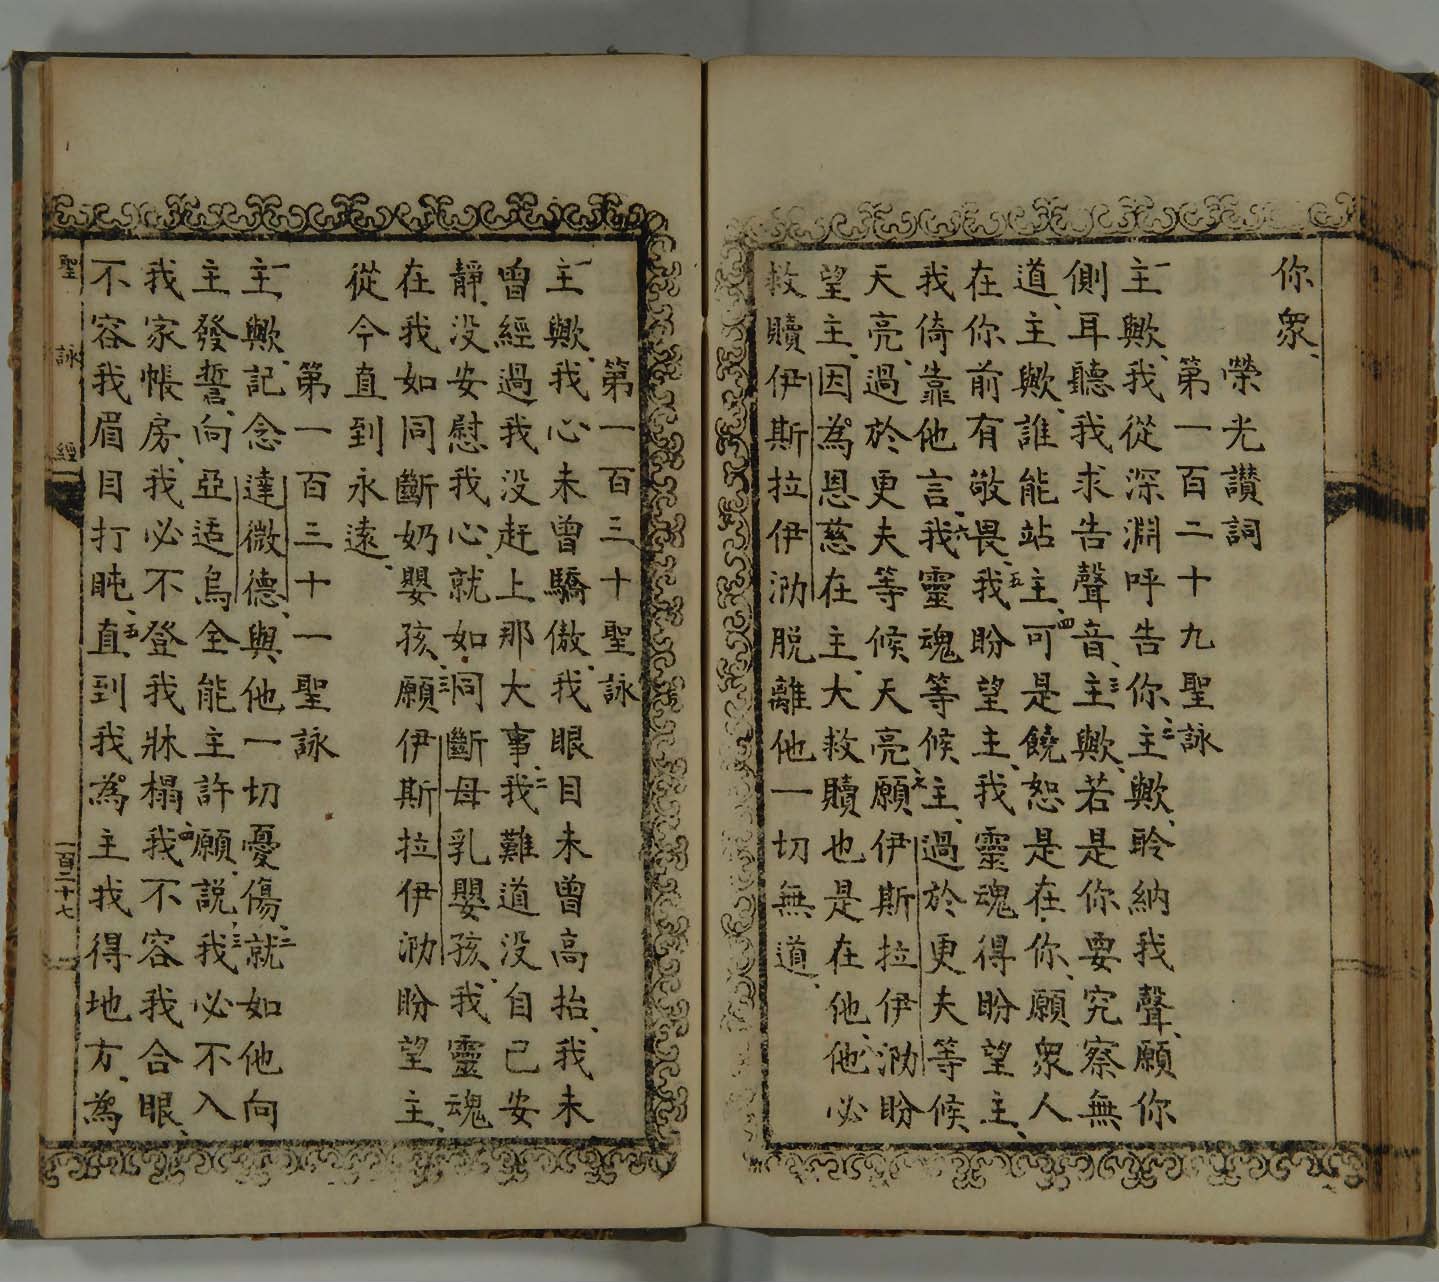 你衆、
榮光讃詞
第一百二十九聖詠
一主歟、我從深淵呼告你、二主歟、聆納我聲、願你
側耳聽我求告聲音、三主歟、若是你要究察無
道、主歟、誰能站主、四可是饒恕是在你、願衆人
在你前有敬畏、五我盼望主、我靈魂得盼望主、
我倚靠他言、六我靈魂等候主、過於更夫等候
天亮、過於更夫等候天亮、七願伊斯拉伊泐盼
望主、因為恩慈在主、大救贖也是在他、他必
救贖伊斯拉伊泐脱離他一切無道、
第一百三十聖詠
一主歟、我心未曾驕傲、我眼目未曾高抬、我未
曾經過我没赶上那大事、二我難道没自己安
靜、没安慰我心、就如同斷母乳嬰孩、我靈魂
在我如同斷奶嬰孩、三願伊斯拉伊泐盼望主、
從今直到永遠、
第一百三十一聖詠
一主歟、記念達微德、與他一切憂傷、二就如他向
主發誓、向亞适烏全能主許願、説、三我必不入
我家帳房、我必不登我牀榻、四我不容我合眼、
不容我眉目打盹、五直到我為主我得地方、為
聖詠經
一百二十七